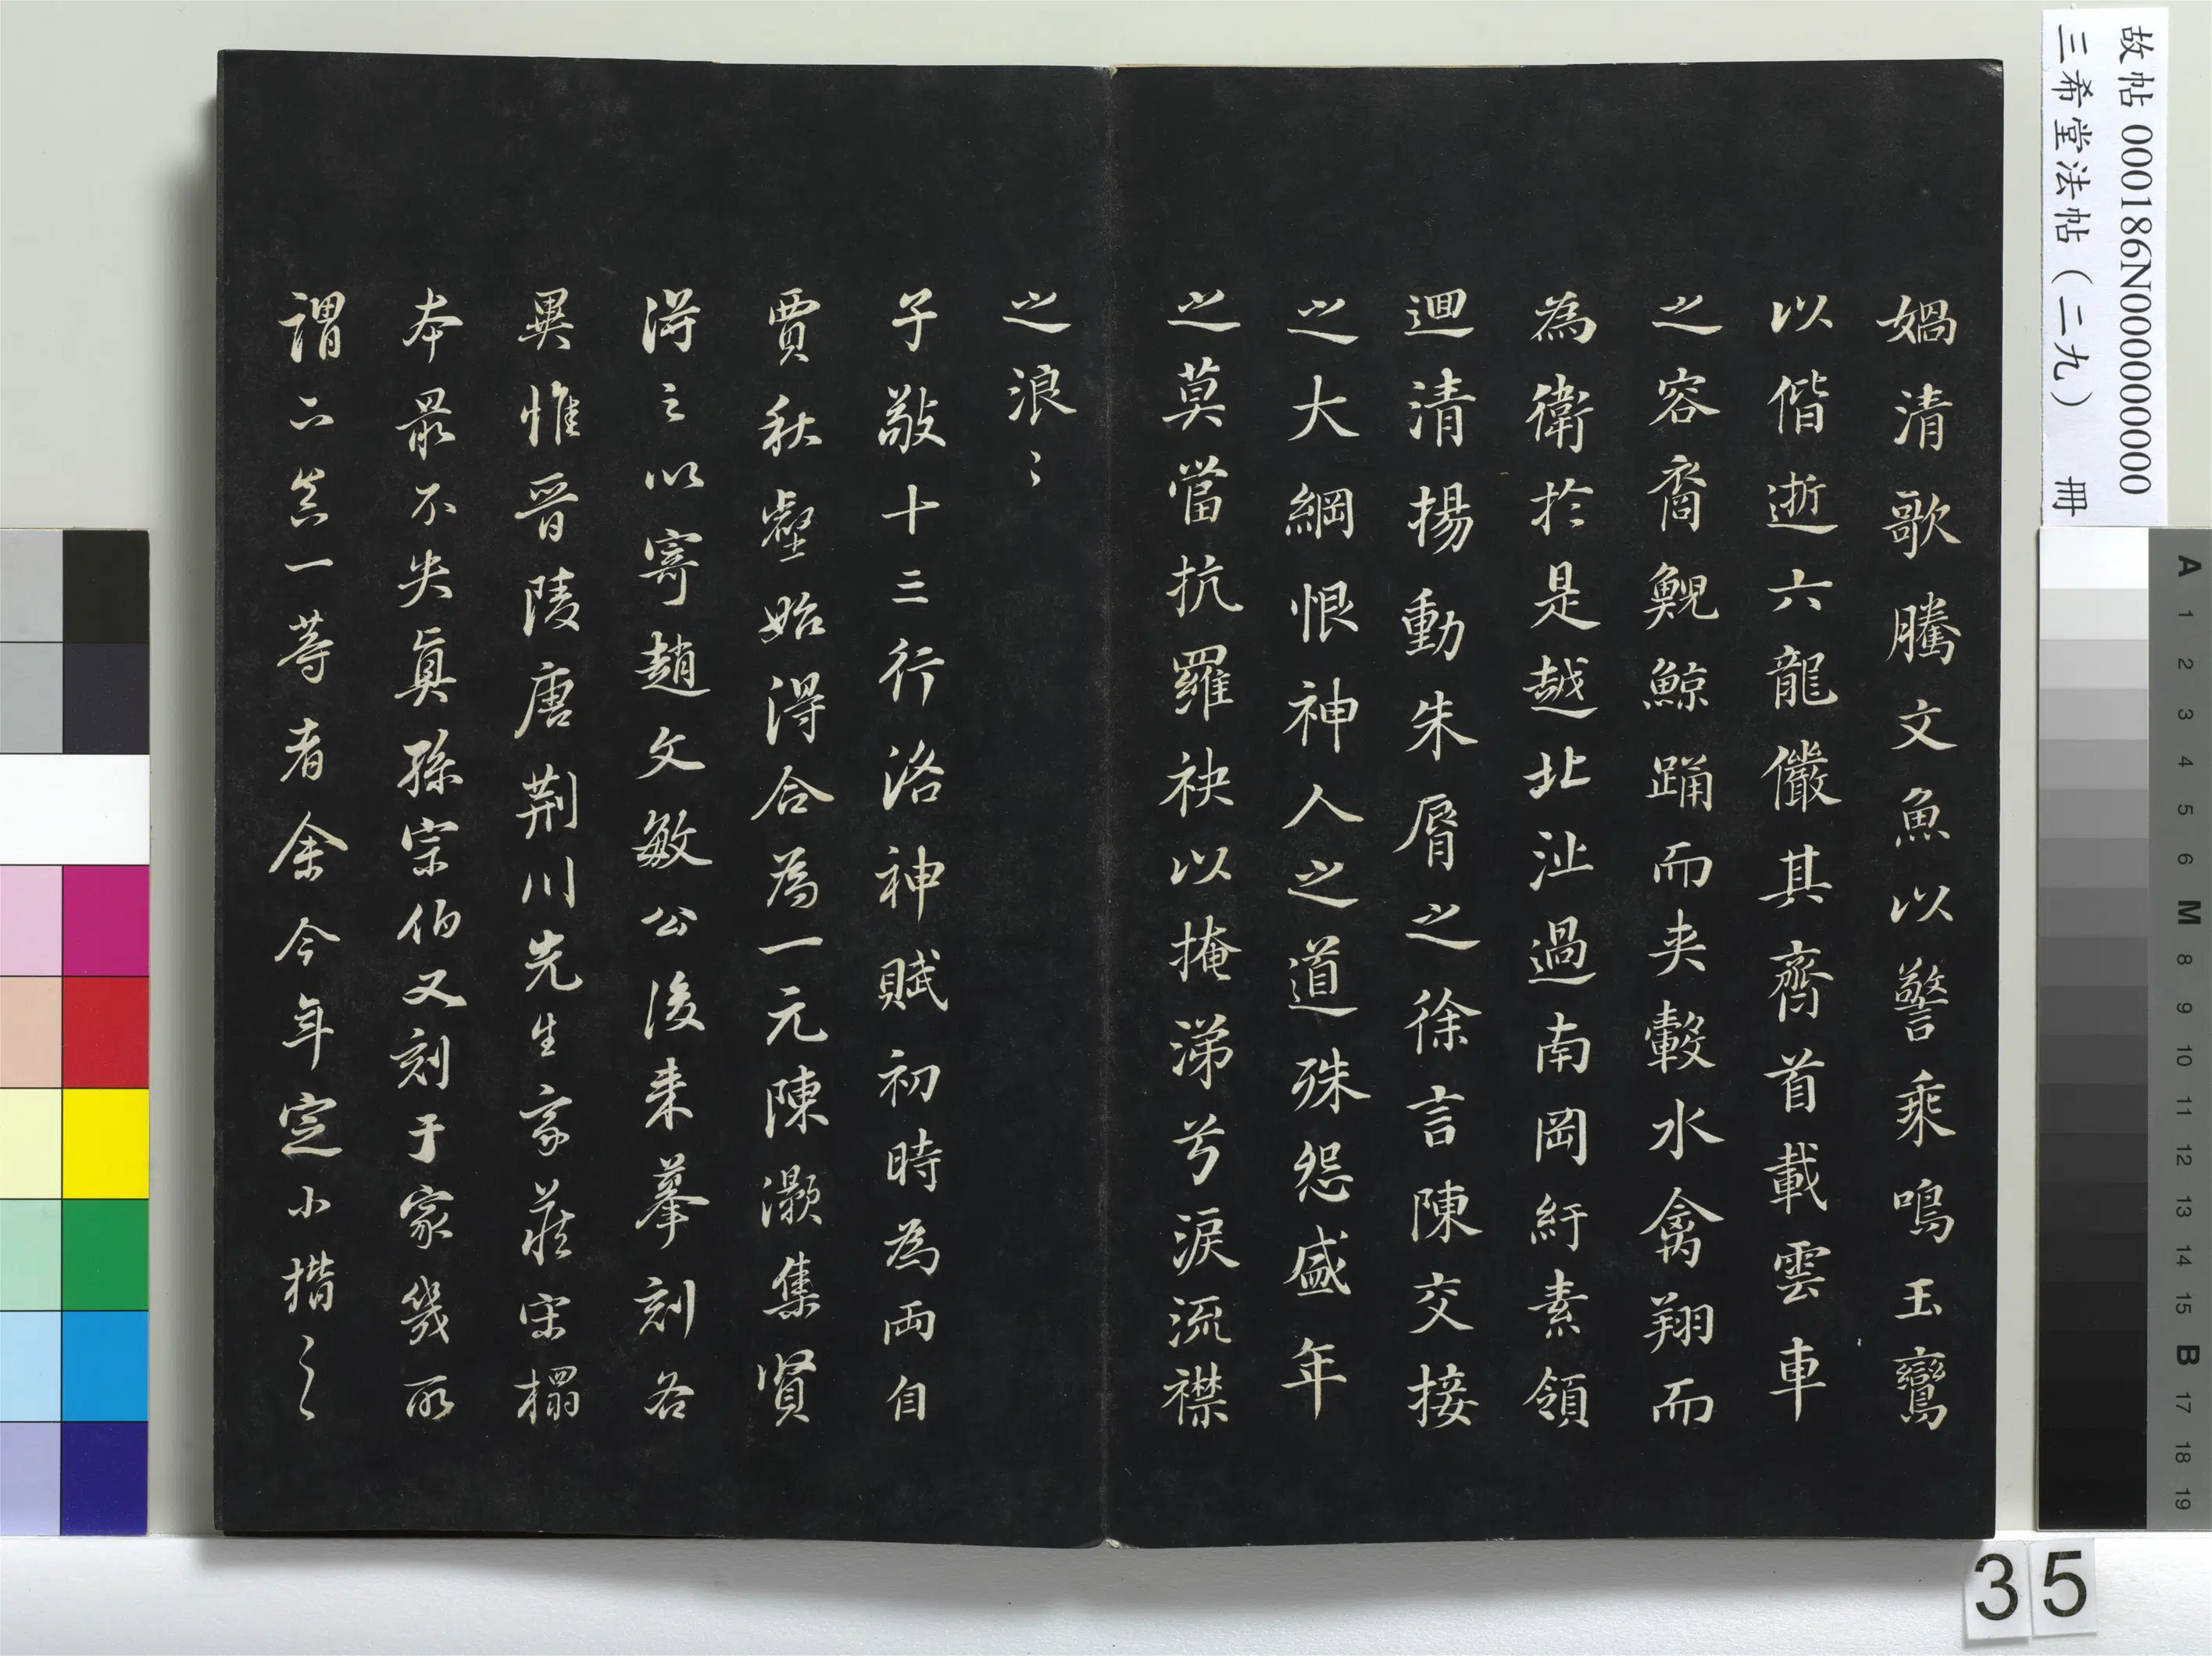 故帖 000186N000000000
三希堂法帖（二九） 冊
媧清歌騰文魚以警乘鳴玉鸞
以偕逝六龍儼其齊首載雲車
之容裔鯢鯨踊而夾轂水禽翔而
為衛於是越北沚過南岡紆素領
迴清揚動朱脣之徐言陳交接
之大綱恨神人之道殊怨盛年
之莫當抗羅袂以掩涕兮淚流襟
之浪〻
子敬十三行洛神賦初時為兩自
賈秋壑始得合為一元陳灝集賢
得之以寄趙文敏公後來摹刻各
異惟晋陵唐荆川先生家藏宋榻
本最不失真孫宗伯又刻于家幾所
謂下真一等者余今年定小楷之
35
A 1 2 3 4 5 6 M 8 9 10 11 12 13 14 15 B 17 18 19